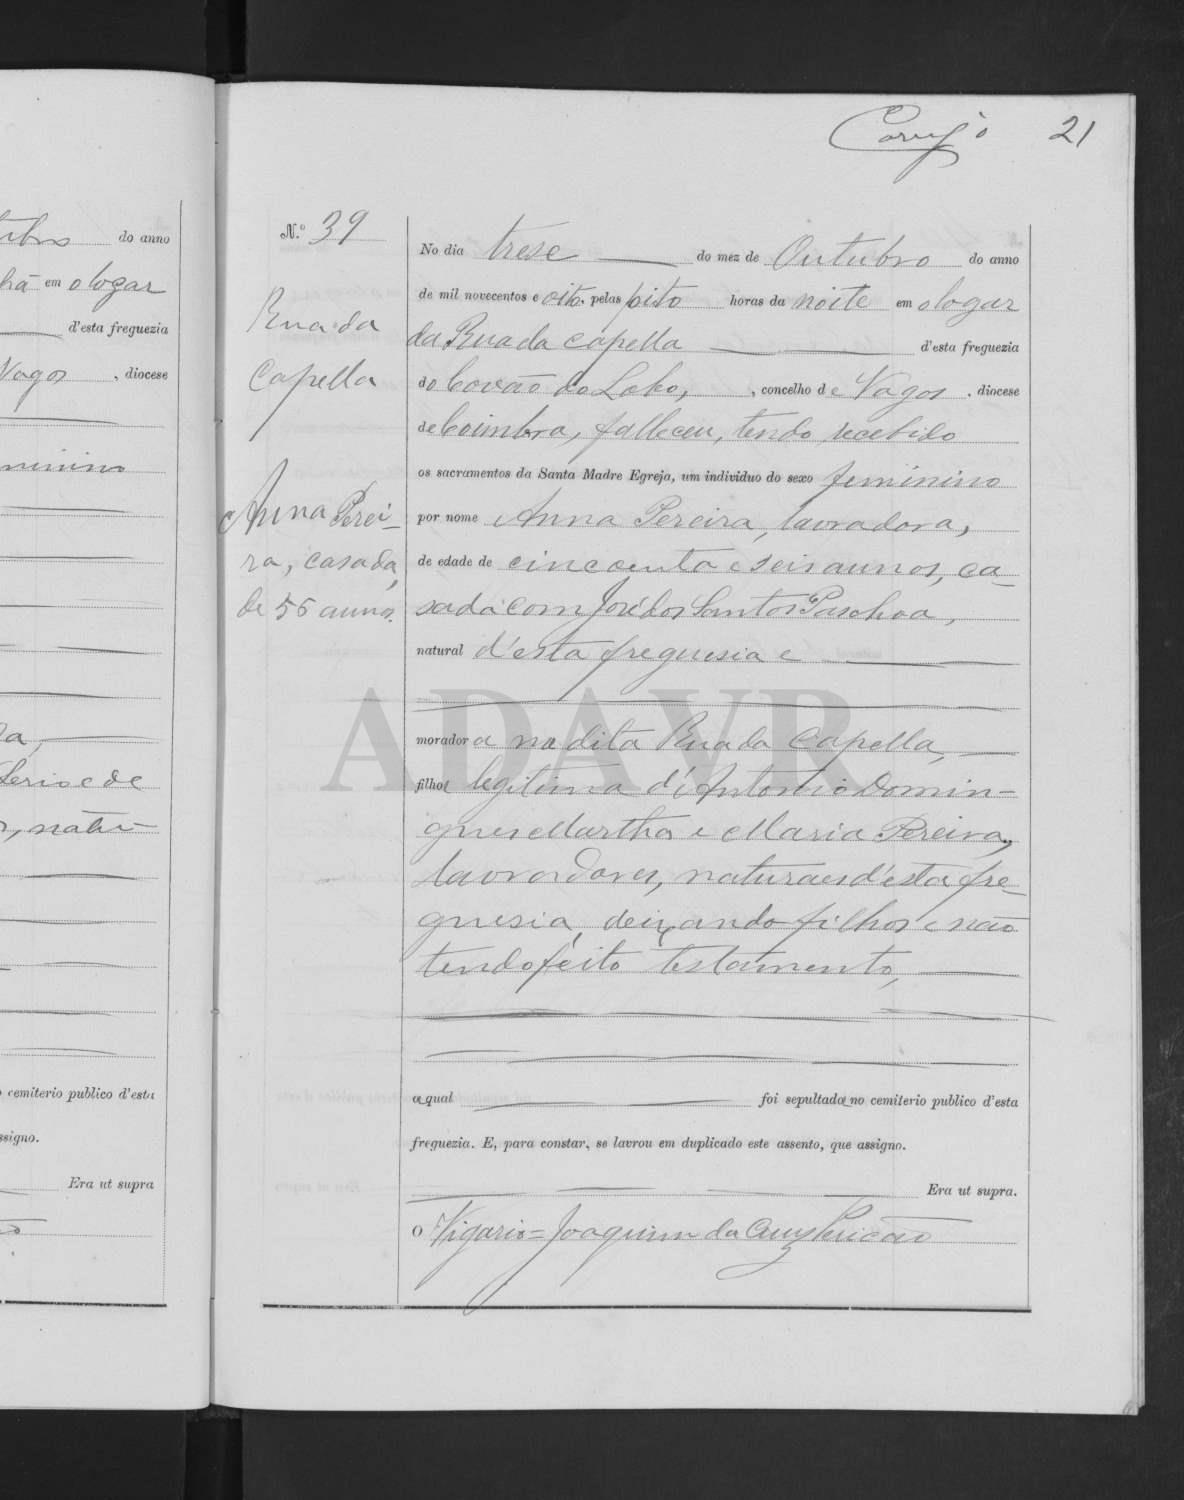 21
tubro do anno
hã em o logar
d'esta freguezia
Vagos, diocese
minino
a,
Lerio e de
, natu-
cemiterio publico d'esta
ssigno.
Era ut supra
N.º 39
Rua da
Capella
Anna Perei-
ra, casada,
de 56 annos.
No dia trese do mez de Outubro do anno
de mil novecentos e oito, pelas oito horas da noite em o logar
da Rua da Capella d'esta freguezia
do Covão do Lobo, , concelho de Vagos, diocese
de Coimbra, falleceu, tendo recebido
os sacramentos da Santa Madre Egreja, um individuo do sexo feminino
por nome Anna Pereira, lavradora,
de edade de cincoenta e seis annos, ca-
sada com José dos Santos Paschoa,
natural d'esta freguesia e
ADAVR
moradora na dita Rua da Capella,
filha legitima d'Antonio Domin-
gues Martha e Maria Pereira,
lavradores, naturaes d'esta fre-
guesia, deixando filhos e não
tendo feito testamento,
a qual foi sepultada no cemiterio publico d'esta
freguezia. E, para constar, se lavrou em duplicado este assento, que assigno.
Era ut supra.
O Vigario = Joaquim da Cruz Pericão